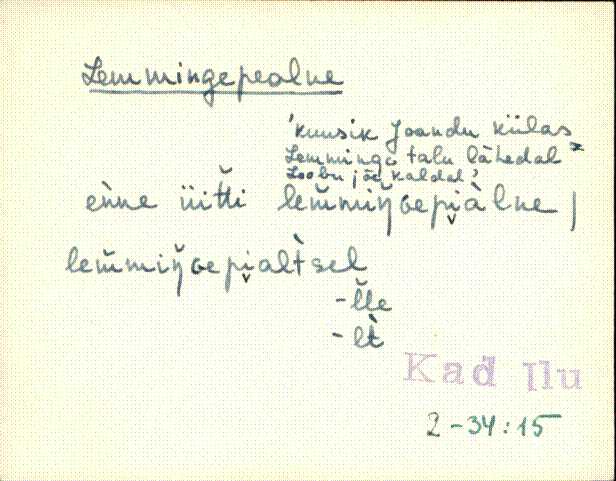 Lemmingepealne
'kuusik Joandu külas
Lemminge talu lähedal
Loobu jõe kaldal'
eǹne üitt̆i lem̆miŋ̆Gepi̬àlne |
lem̆miŋ̆Gepi̬alt̀sel
-l̆le
-lt̀
Kad Ilu
2-34:15